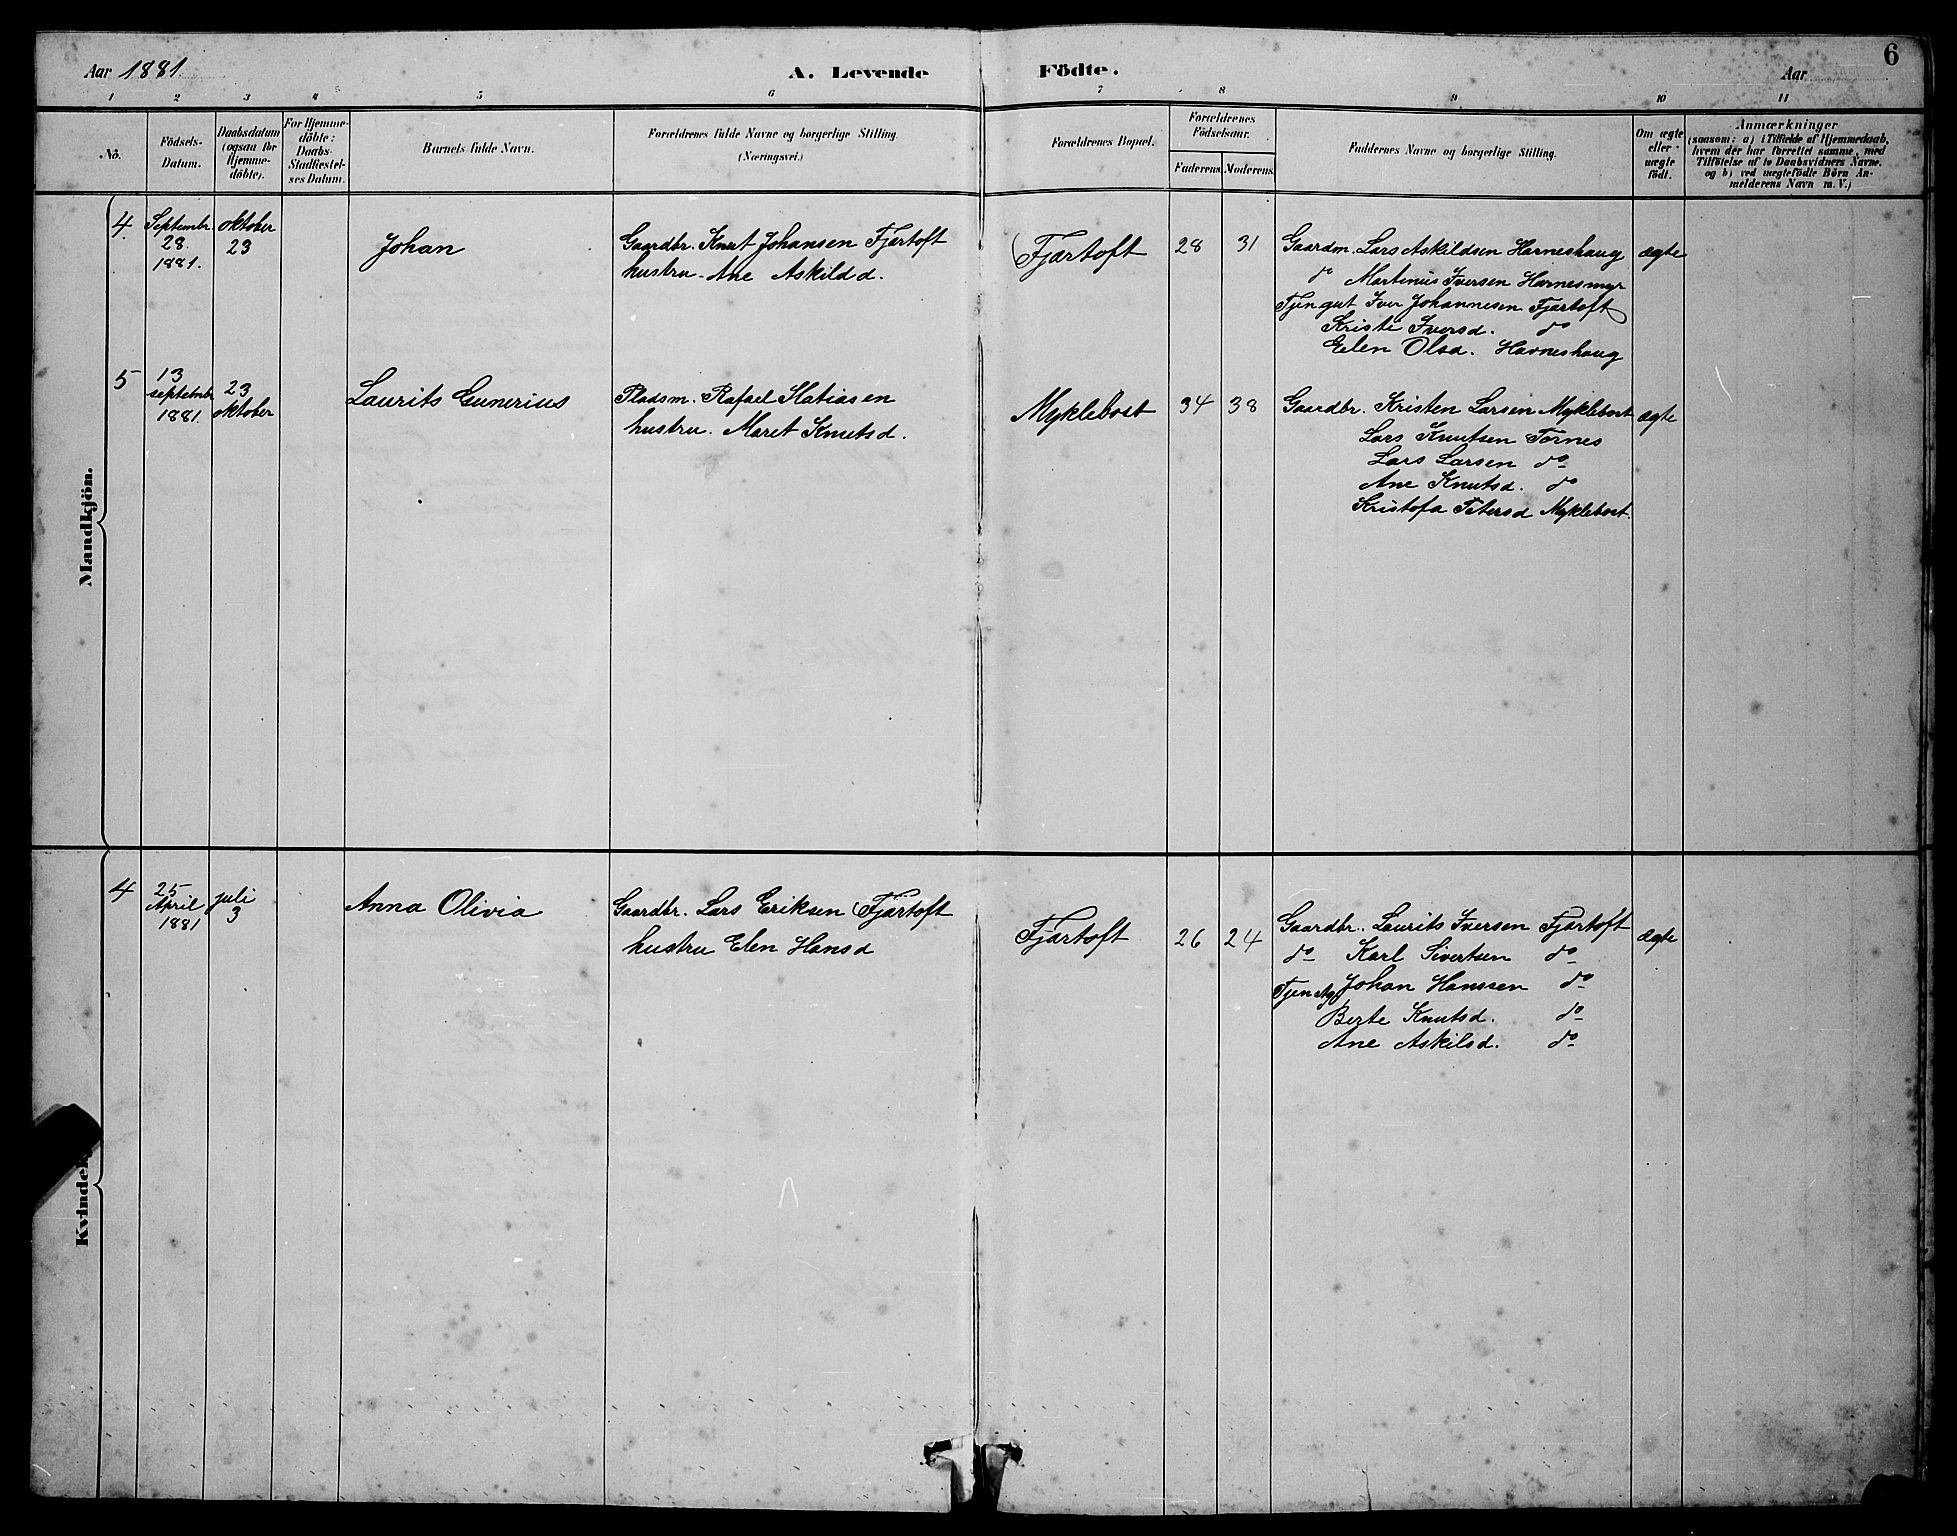 6
Aar 1881.
A. Levende Födte.
Aar
1 2 3 4 5 6 7 8 9 10 11
No.
Födsels-
Datum.
Daabsdatum
(ogsaa for
Hjemme-
döbte).
For Hjemme-
döbte:
Daabs-
Stadfæstel-
ses Datum.
Barnets fulde Navn.
Forældrenes fulde Navne og borgerlige Stilling.
(Næringsvei.)
Forældrenes Bopæl.
Forældrenes
Födselsaar.
Faderens. Moderens.
Faddernes Navne og borgerlige Stilling.
Om ægte
eller
uægte
födt.
Anmærkninger
(saasom: a) i Tilfælde af Hjemmedaab,
hvem der har forrettet samme, med
Tilföielse af to Daabsvidners Navne,
og b) ved uægtefödte Börn An-
melderens Navn m. V.)
Mandkjön.
4.
Septembr.
28.
1881.
oktober
23
Johan
Gaardbr. Knut Johansen Fjærtoft
hustru. Ane Askildd.
Fjærtoft
28
31
Gaardm. Lars Askildsen Harneshaug
do Martinus Iversen Harnesmyr
Tjengut Iver Johannesen Fjærtoft
Kristi Iversd. do
Elen Olsd. Harneshaug
ægte
5
13
septembr
1881.
23
oktober
Laurits Gunerius
Pladsm. Rafael Matiasen
hustru. Maret Knutsd.
Myklebost
34
38
Gaardbr. Kristen Larsen Myklebost
Lars Knutsen Tornes
Lars Larsen do
Ane Knutsd. do
Kristofa Petersd Myklebost.
ægte
Kvindek
4
25
April
1881
juli
3
Anna Olivia
Gaardbr. Lars Eriksen Fjærtoft
hustru Elen Hansd
Fjærtoft
26
24
Gaardbr. Laurits Iversen Fjærtoft
do Karl Sivertsen do
Johan Hanssen do
Berte Knutsd. do
Ane Askilsd. do
ægte